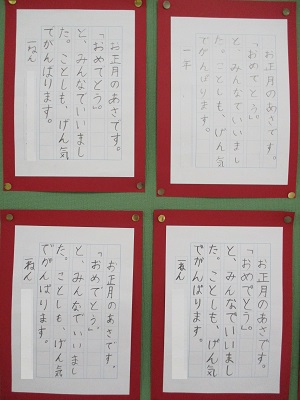 お正月のあさです。
「おめでとう。」
と、みんなでいいまし
た。ことしも、げん気
でがんばります。
一年
お正月のあさです。
「おめでとう。」
と、みんなでいいまし
た。ことしも、げん気
でがんばります。
一ねん
お正月のあさです。
「おめでとう。」
と、みんなでいいまし
た。ことしも、げん気
でがんばります。
一ねん
お正月のあさです。
「おめでとう。」
と、みんなでいいまし
た。ことしも、げん気
でがんばります。
一ねん